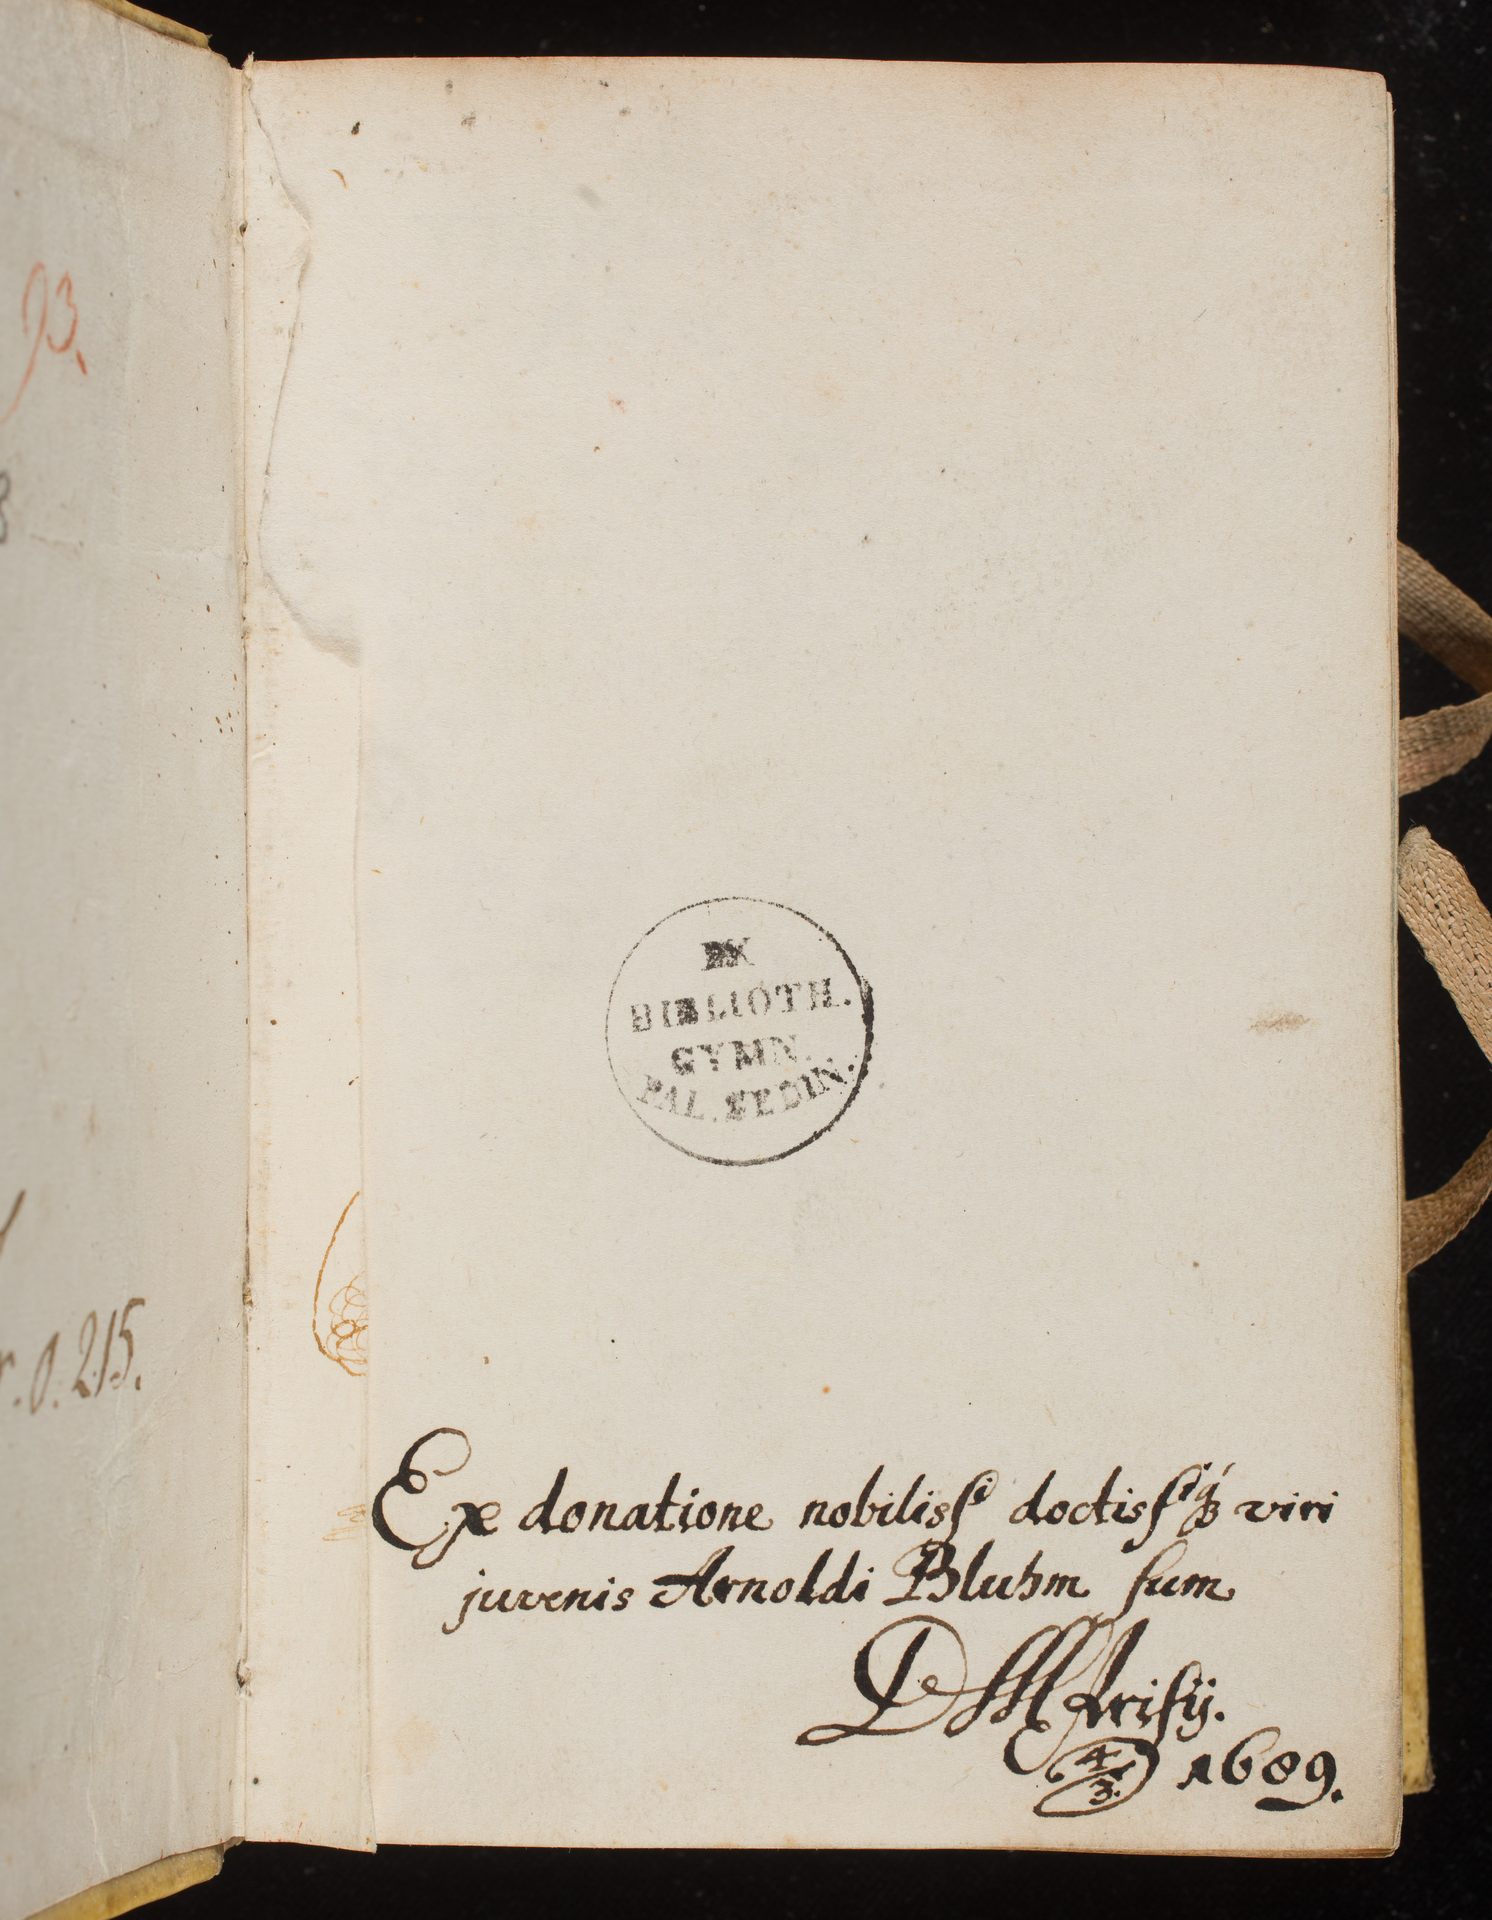 93.
8
r. 0. 215.
EX
BIBLIOTH.
GYMN.
PAL. SEDIN.
Ex donatione nobilissⁱ doctissⁱqꝫ viri
juvenis Arnoldi Bluhm sum
4/3. 1689.